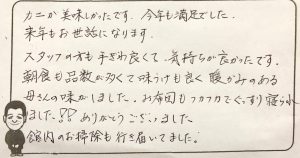 カニが美味しかったです。今年も満足でした。
来年もお世話になります。
スタッフの方も手ぎわ良くて、気持ちが良かったです。
朝食も品数が多くて味つけも良く暖かみのある
母さんの味がしました。お布団もフカフカでぐっすり寝られ
ました!! ありがとうございました
館内のお掃除も行き届いてました。